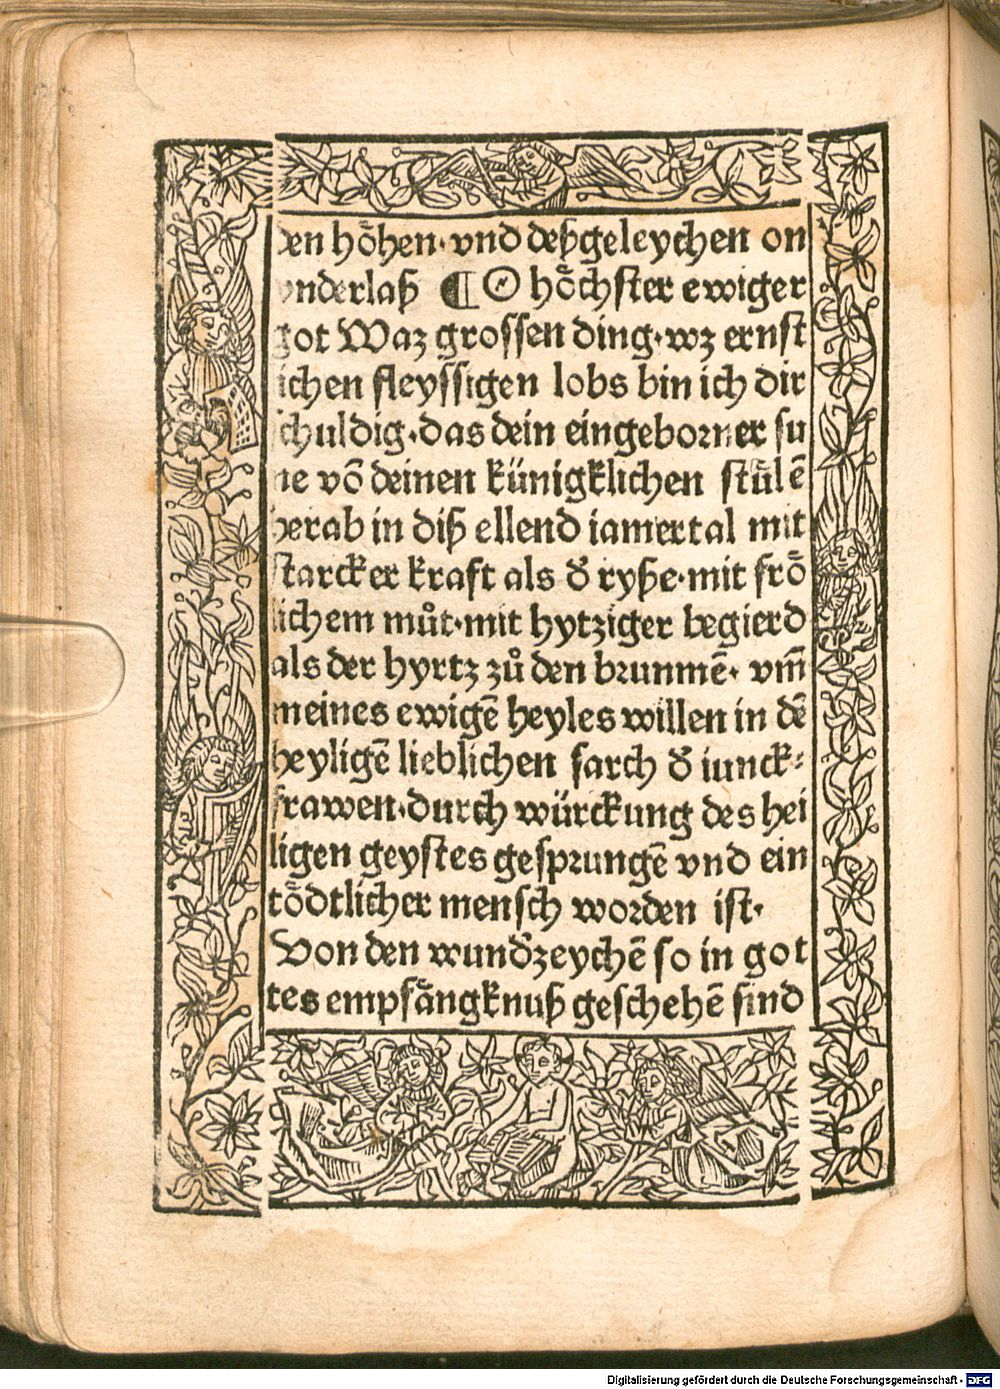 den hoͤhen· vnd deßgeleychen on
vnderlaß ¶ O hoͤchster ewiger
got Waz grossen ding· wz ernst
lichen fleyssigen lobs bin ich dir
schuldig· das dein eingeborner su
ne võ deinen künigklichen stuͤlẽ
herab in diß ellend iamertal mit
starcker kraft als d̕ ryße· mit froͤ
lichem muͦt· mit hytziger begierd
als der hyrtz zuͦ den brunnẽ· vm̄
meines ewigẽ heyles willen in dẽ
heyligẽ lieblichen sarch d̕ iunck⸗
frawen· durch würckung des hei
ligen geystes gesprungẽ vnd ein
toͤdtlicher mensch worden ist·
Von den wund̕zeychẽ so in got
tes empfaͤngknuß geschehẽ sind
Digitalisierung gefördert durch die Deutsche Forschungsgemeinschaft - DFG